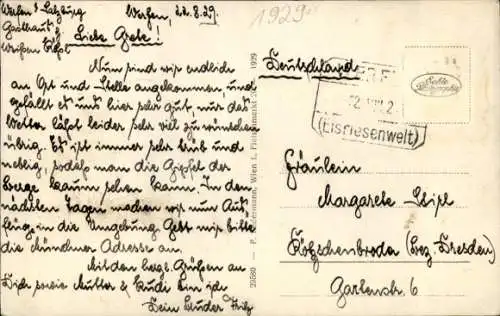 Werfen b Salzburg
Gasthaus z.
Weissen Rössl
Werfen, 22.8.29.
1929
Liebe Grete!
Nun sind wir endlich
an Ort und Stelle angekommen, und
gefällt es uns hier sehr gut, nur das
Wetter lässt leider sehr viel zu wünschen
übrig. Es ist immer sehr trüb und
neblig, sodass man die Gipfel der
Berge kaum sehen kann. In den
nächsten Tagen machen wir nun Aus-
flüge in die Umgebung Gebt mir bitte
die Münchner Adresse an.
Mit den herzl. Grüßen an
Dich sowie Mutter & Rudi bin ich
Dein Bruder Fritz
29580 – P. Ledermann, Wien I., Fleischmarkt – 1929
Deutschland
(Eisriesenwelt)
Echte
Photographie
Fräulein
Margarete
Kötzschenbroda (Bez. Dresden)
Gartenstr. 6